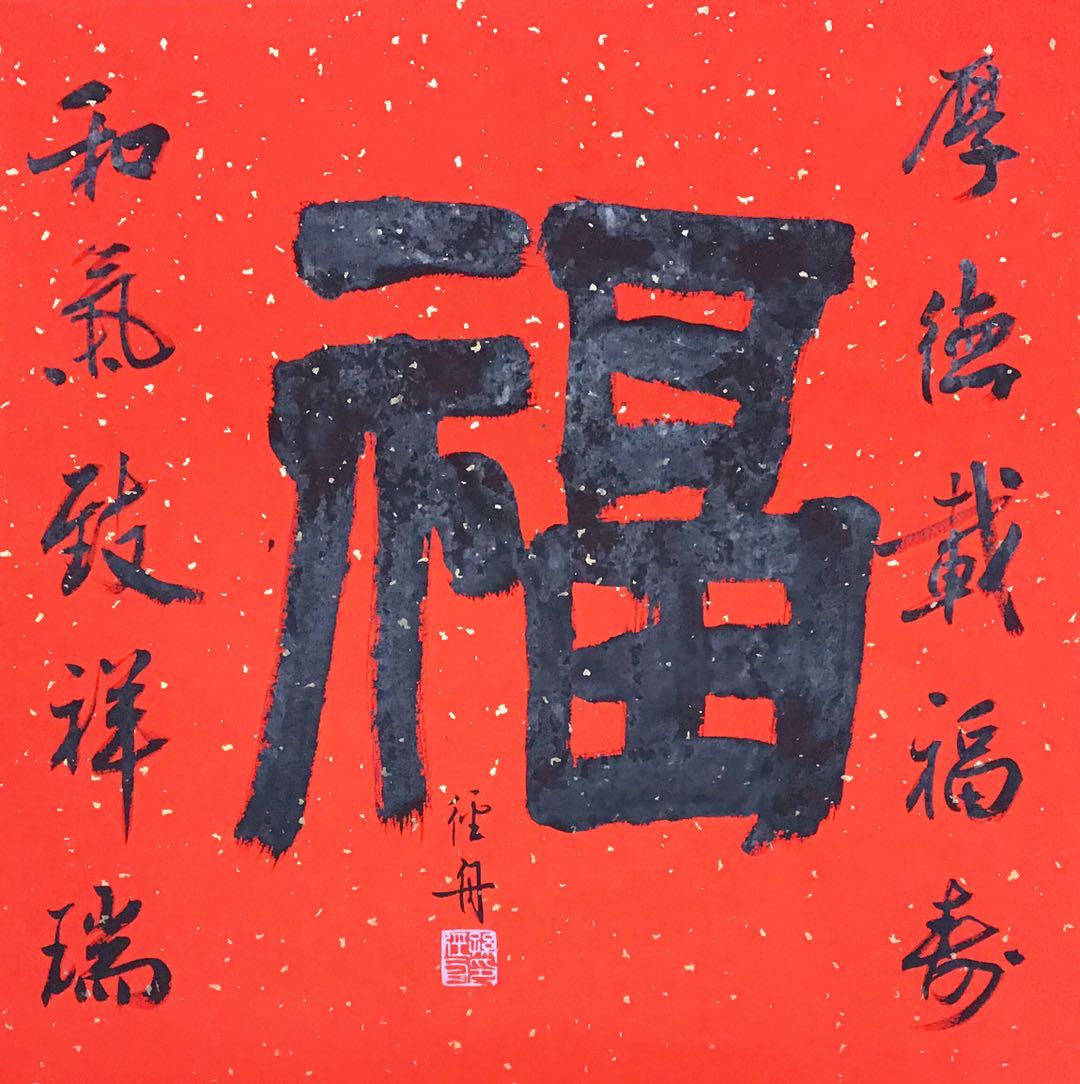 厚德載福寿
福
和氣致祥瑞
徑舟